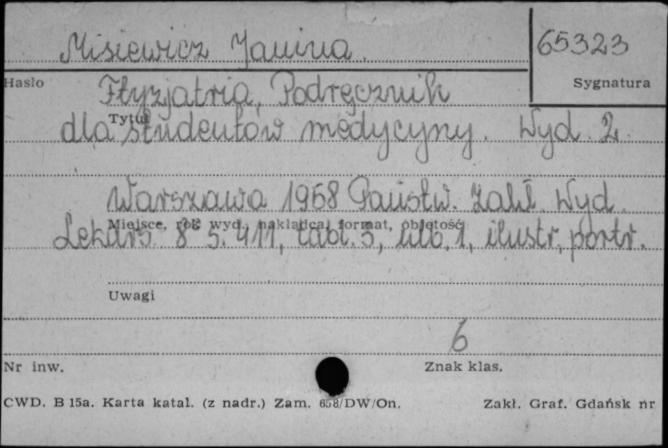 Misiewicz Janina.
65323
Hasło
Sygnatura
Ftyzjatria. Podręcznik
Tytuł
dla studentów medycyny. Wyd. 2.
Warszawa 1968 Państw. Zakł. Wyd.
Miejsce, rok wyd., nakładca, format, objętość
Lekars. 8° s. 411, tabl. 3, nlb. 1, ilustr., portr.
Uwagi
6
Nr inw.
Znak klas.
CWD. B 15a. Karta katal. (z nadr.) Zam. 658/DW/On.
Zakł. Graf. Gdańsk nr